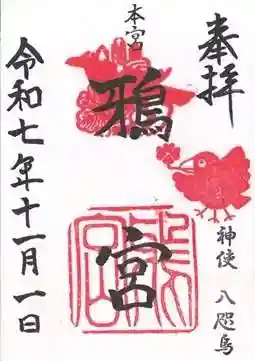 奉拝
神使 八咫烏
本宮
鴉宮
令和七年十一月一日